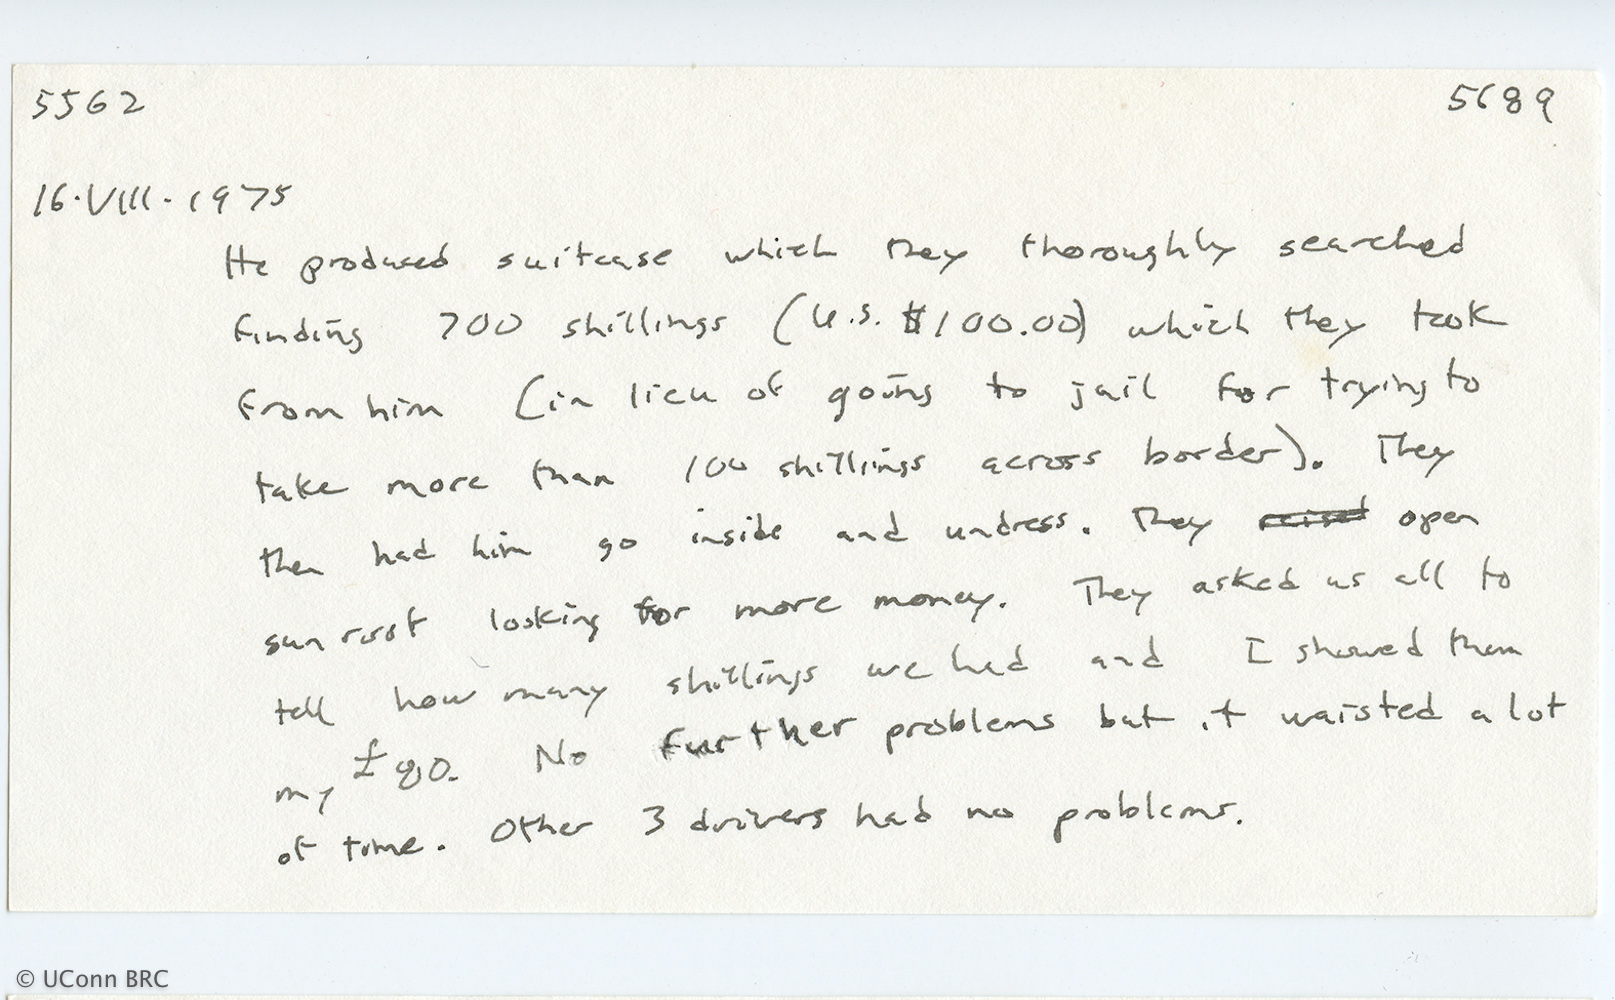 5562 5689
16·VIII·1975
He produced suitcase which they thoroughly searched
finding 700 shillings (U.S. $100.00) which they took
from him (in lieu of going to jail for trying to
take more than 100 shillings across border). They
then had him go inside and undress. They raised open
sun roof looking for more money. They asked us all to
tell how many shillings we had and I showed them
my £80. No further problems but it waisted a lot
of time. Other 3 drivers had no problems.
© UConn BRC